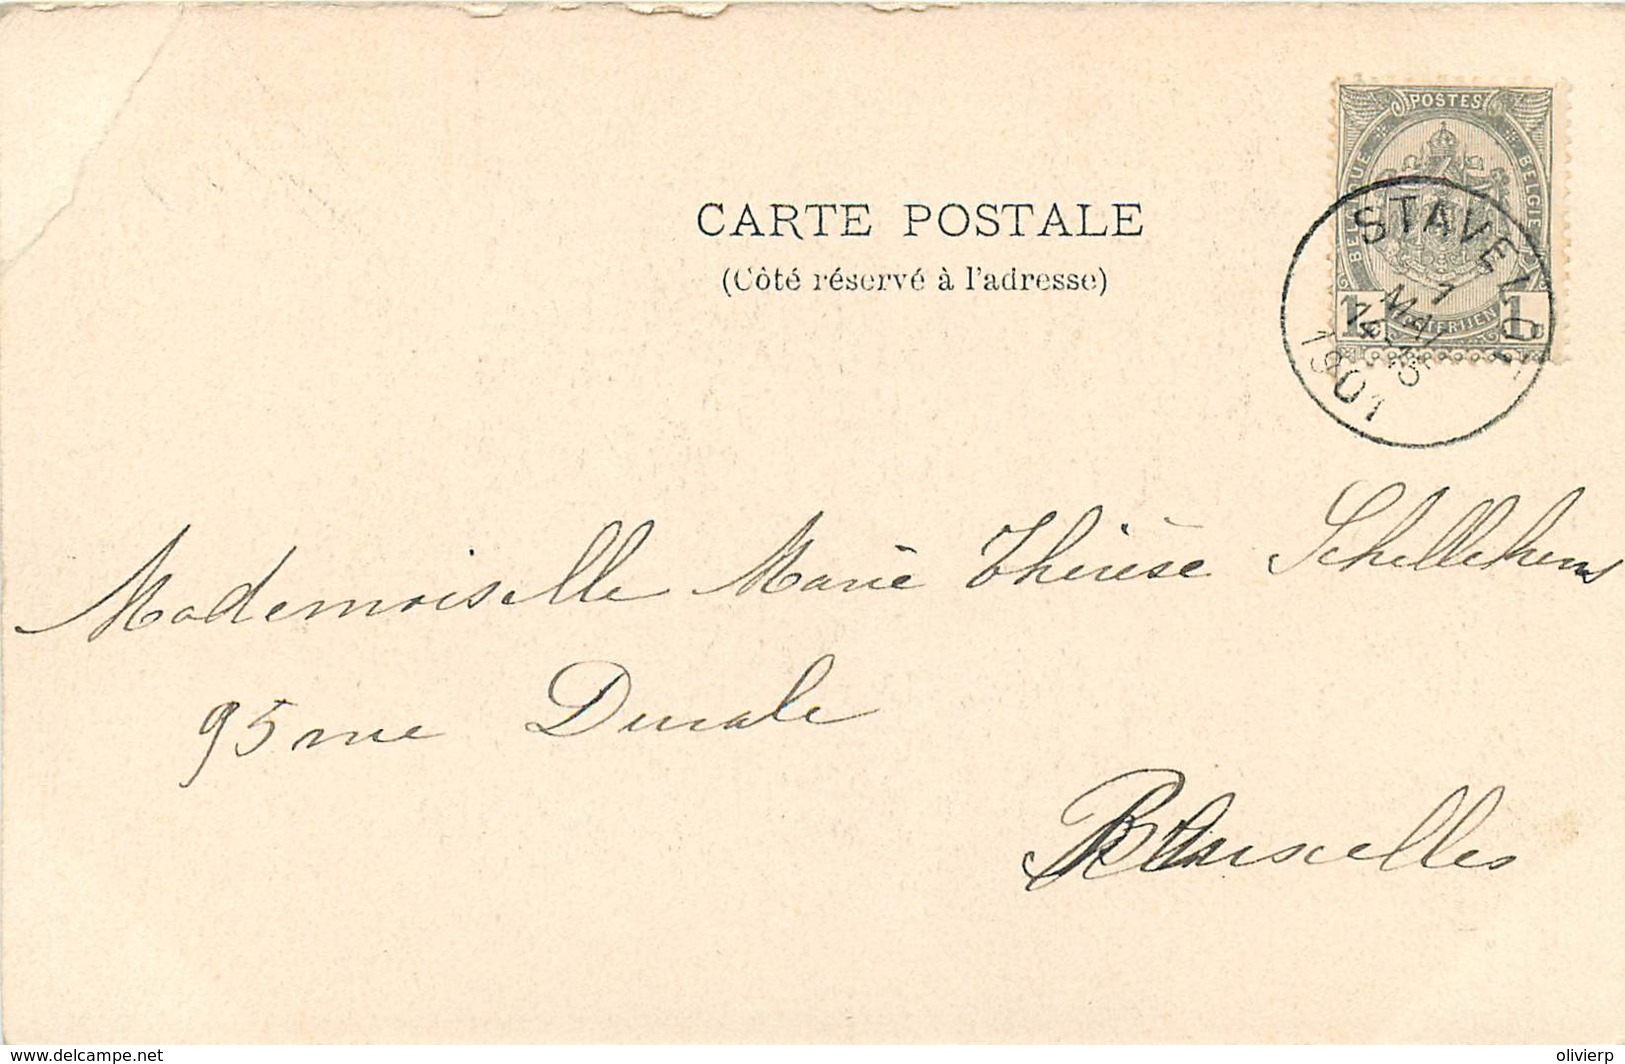 POSTES
BELGIQUE
BELGIE
POSTERIJEN
1c 1c
STAVELOT
7
MAI
1901
CARTE POSTALE
(Côté réservé à l'adresse)
Mademoiselle Marie Thérèse Schellekens
95 rue Ducale
Bruxelles
www.delcampe.net
olivierp